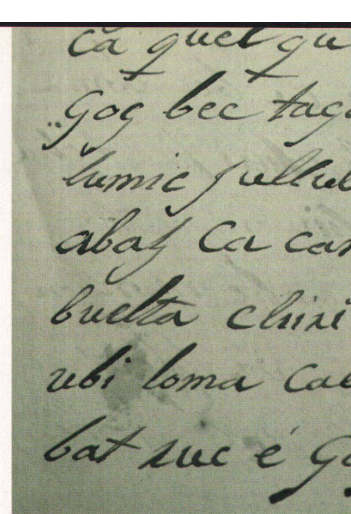 ca quel qu
Gog bec tag
lumic
abaj Ca can
buelta chiri
ubi loma Cae
bat suc é G